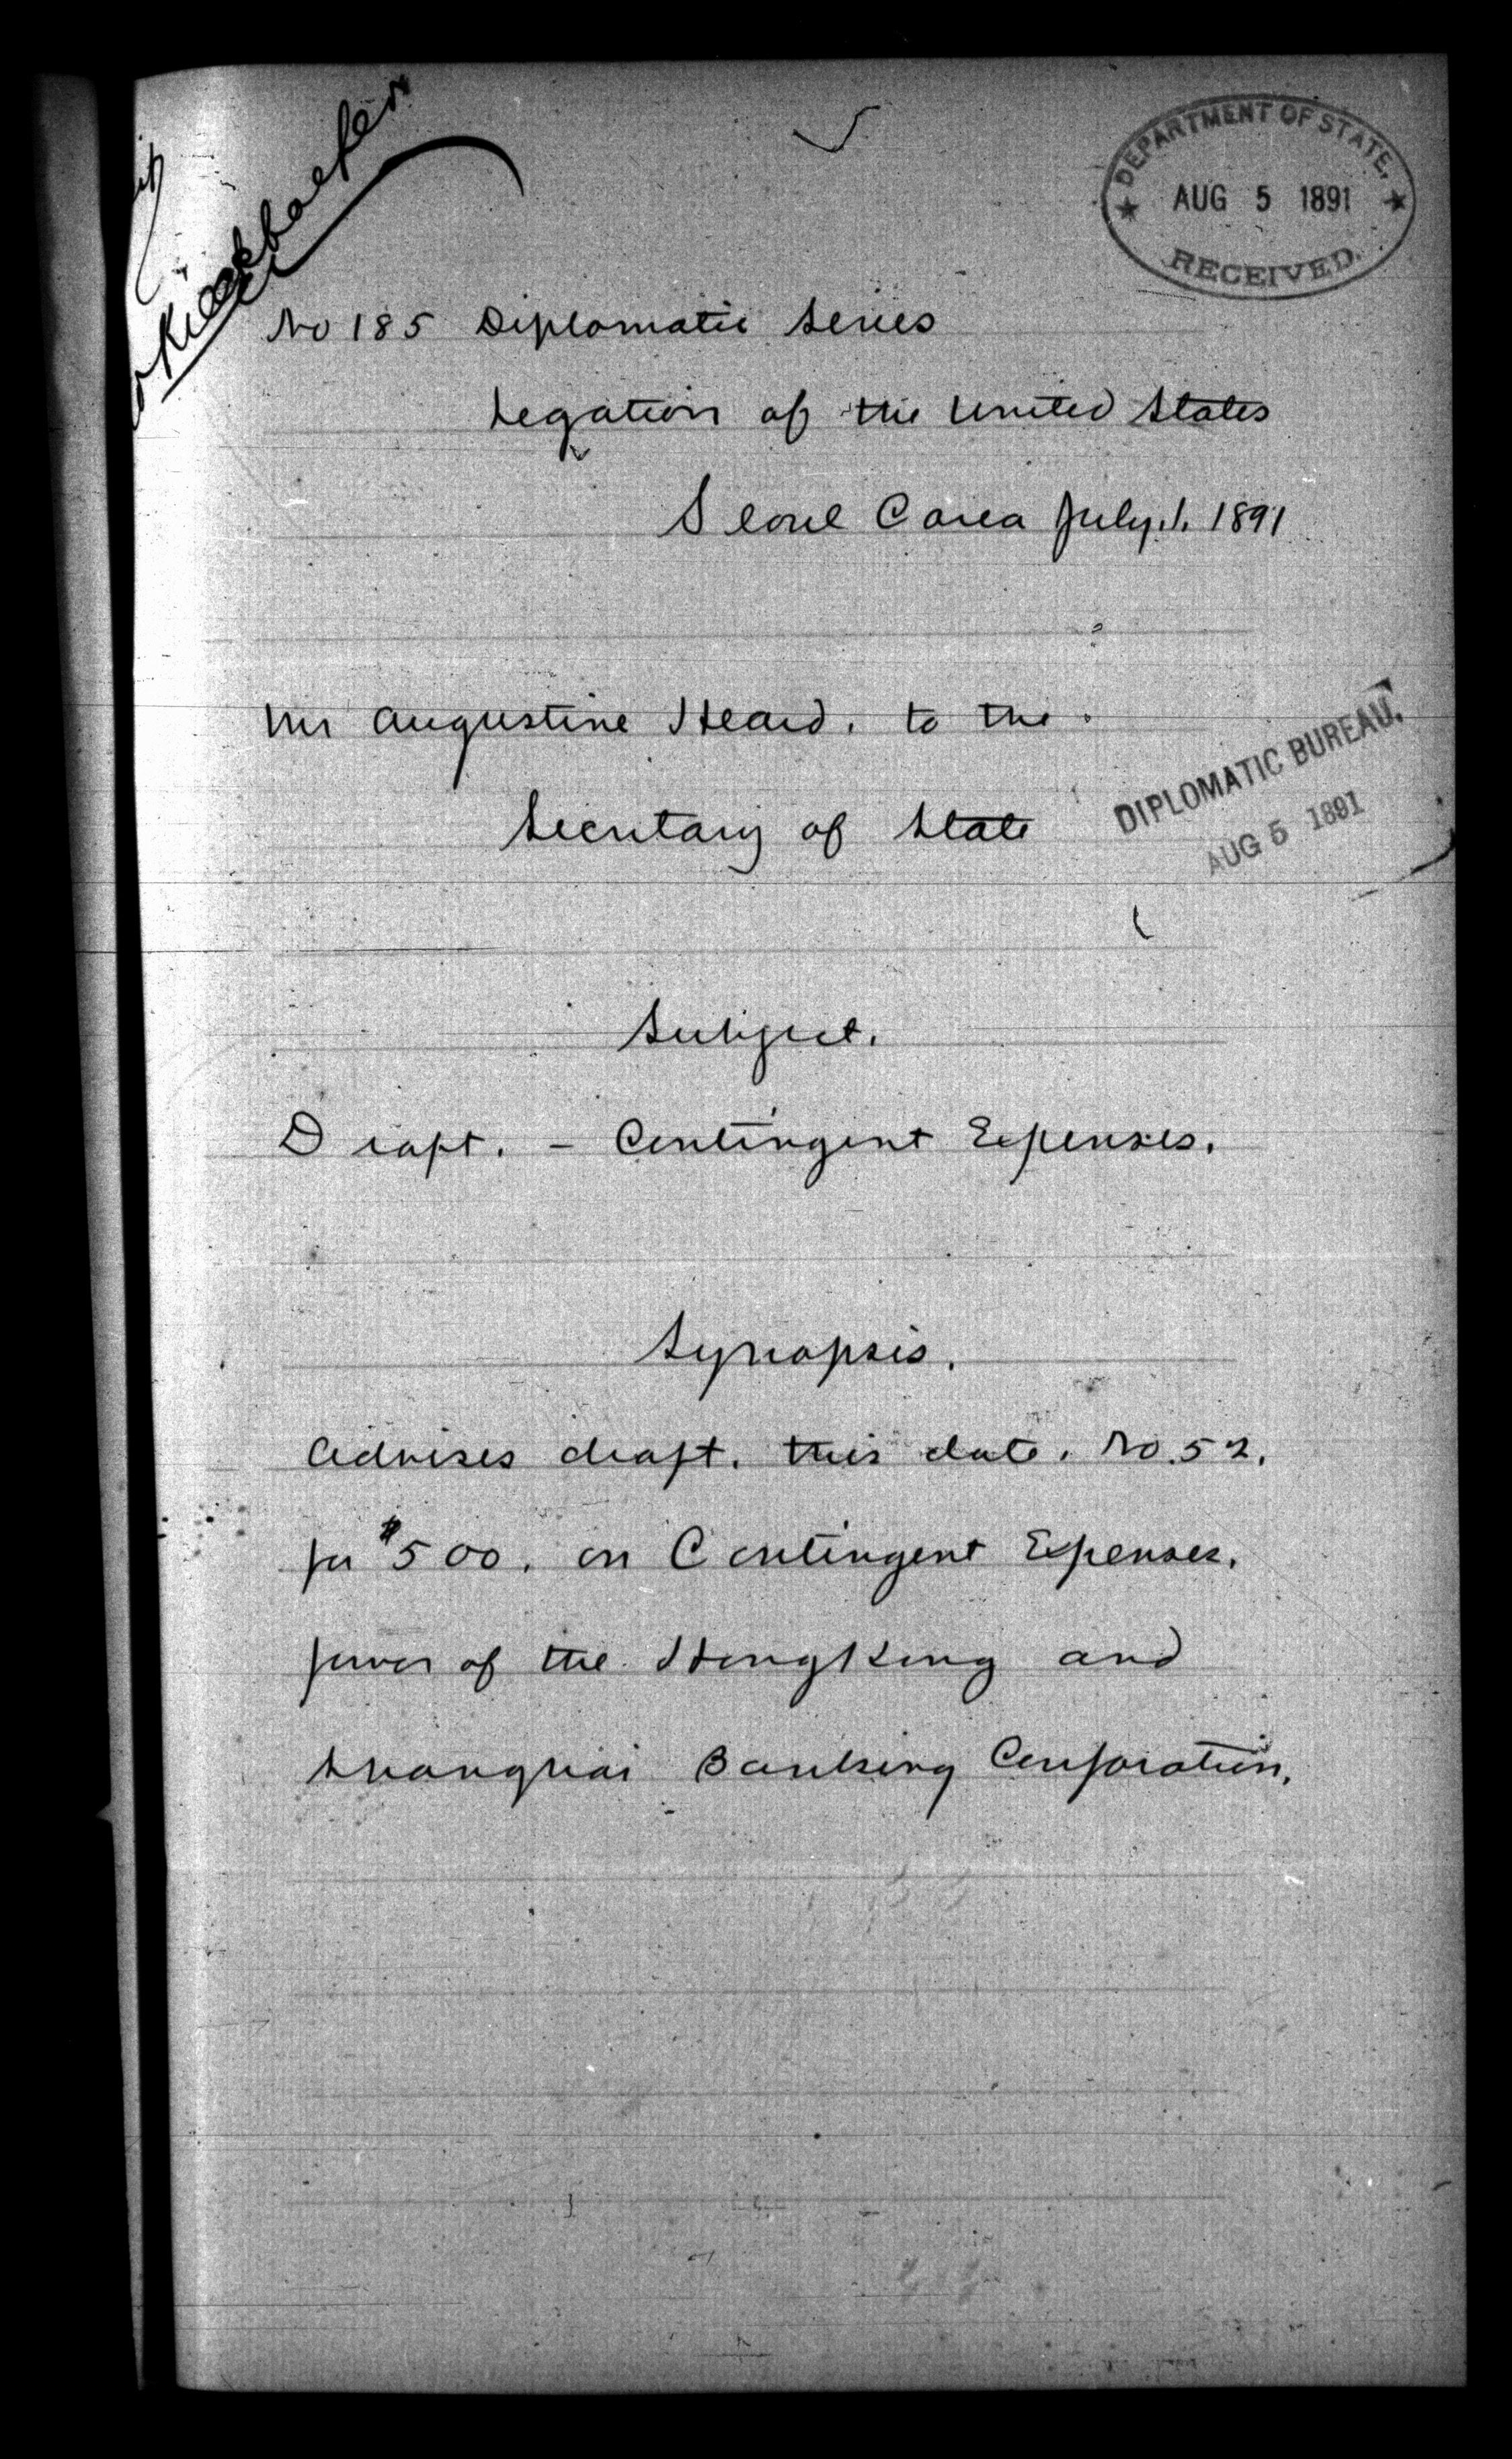 DEPARTMENT OF STATE,
AUG 5 1891
RECEIVED.
No 185 Diplomatic Series
Legation of the United States
Seoul Corea July. 1. 1891
Mr Augustine Heard. to the
Secretary of State
DIPLOMATIC BUREAU.
AUG 5 1891
Subject.
Draft. - Contingent Expenses.
Synopsis.
Advises draft. this date. No. 52.
for $500. on Contingent Expenses.
favor of the HongKong and
Shanghai Banking Corporation.